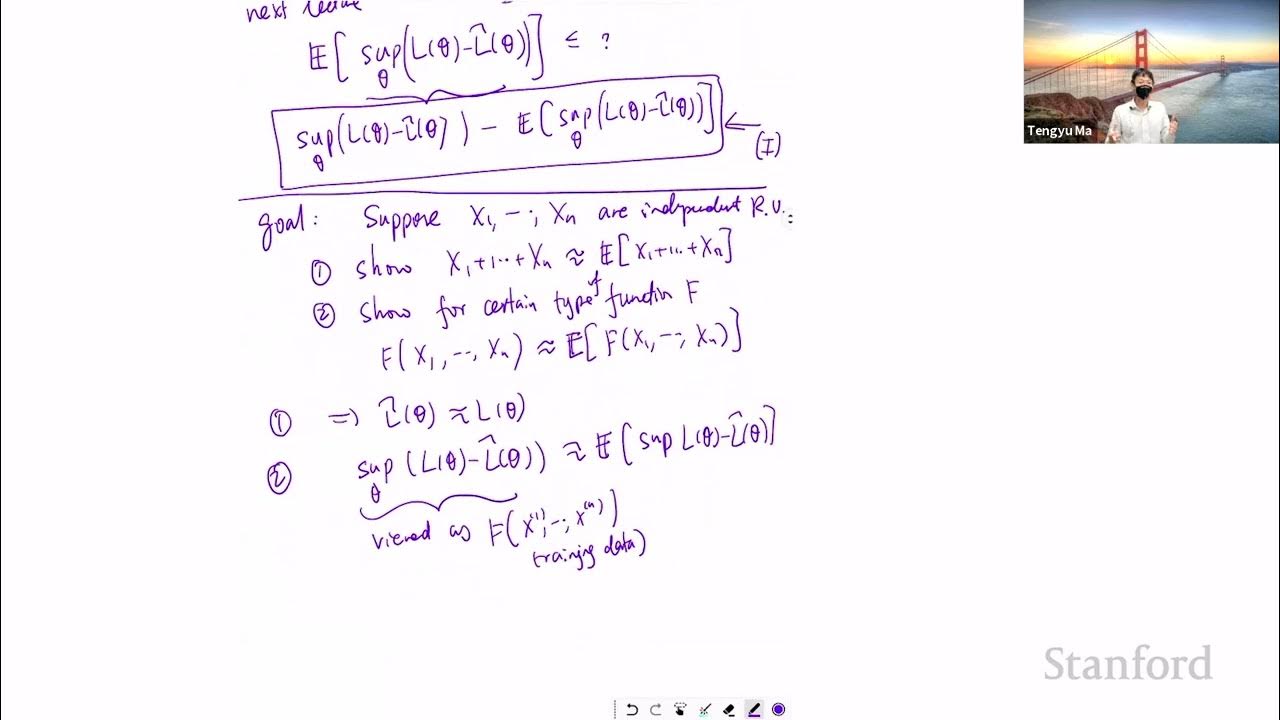 next lecture
𝔼[ sup_θ (L(θ)-L̂(θ)) ] ≤ ?
sup_θ (L(θ)-L̂(θ)) - 𝔼[ sup_θ (L(θ)-L̂(θ)) ] ← (I)
goal: Suppose X₁, -; Xn are independent R.V.:
① show X₁+1..+Xn ≈ 𝔼[X₁+...+Xn]
② show for certain type of function F
F(X₁, --, Xn) ≈ 𝔼[F(X₁, --; Xn)]
① ⇒ L̂(θ) ≈ L(θ)
② sup_θ (L(θ)-L̂(θ)) ≈ 𝔼[ sup L(θ)-L̂(θ) ]
viewed as F(x⁽¹⁾, -; x⁽ⁿ⁾)
training data)
Tengyu Ma
Stanford